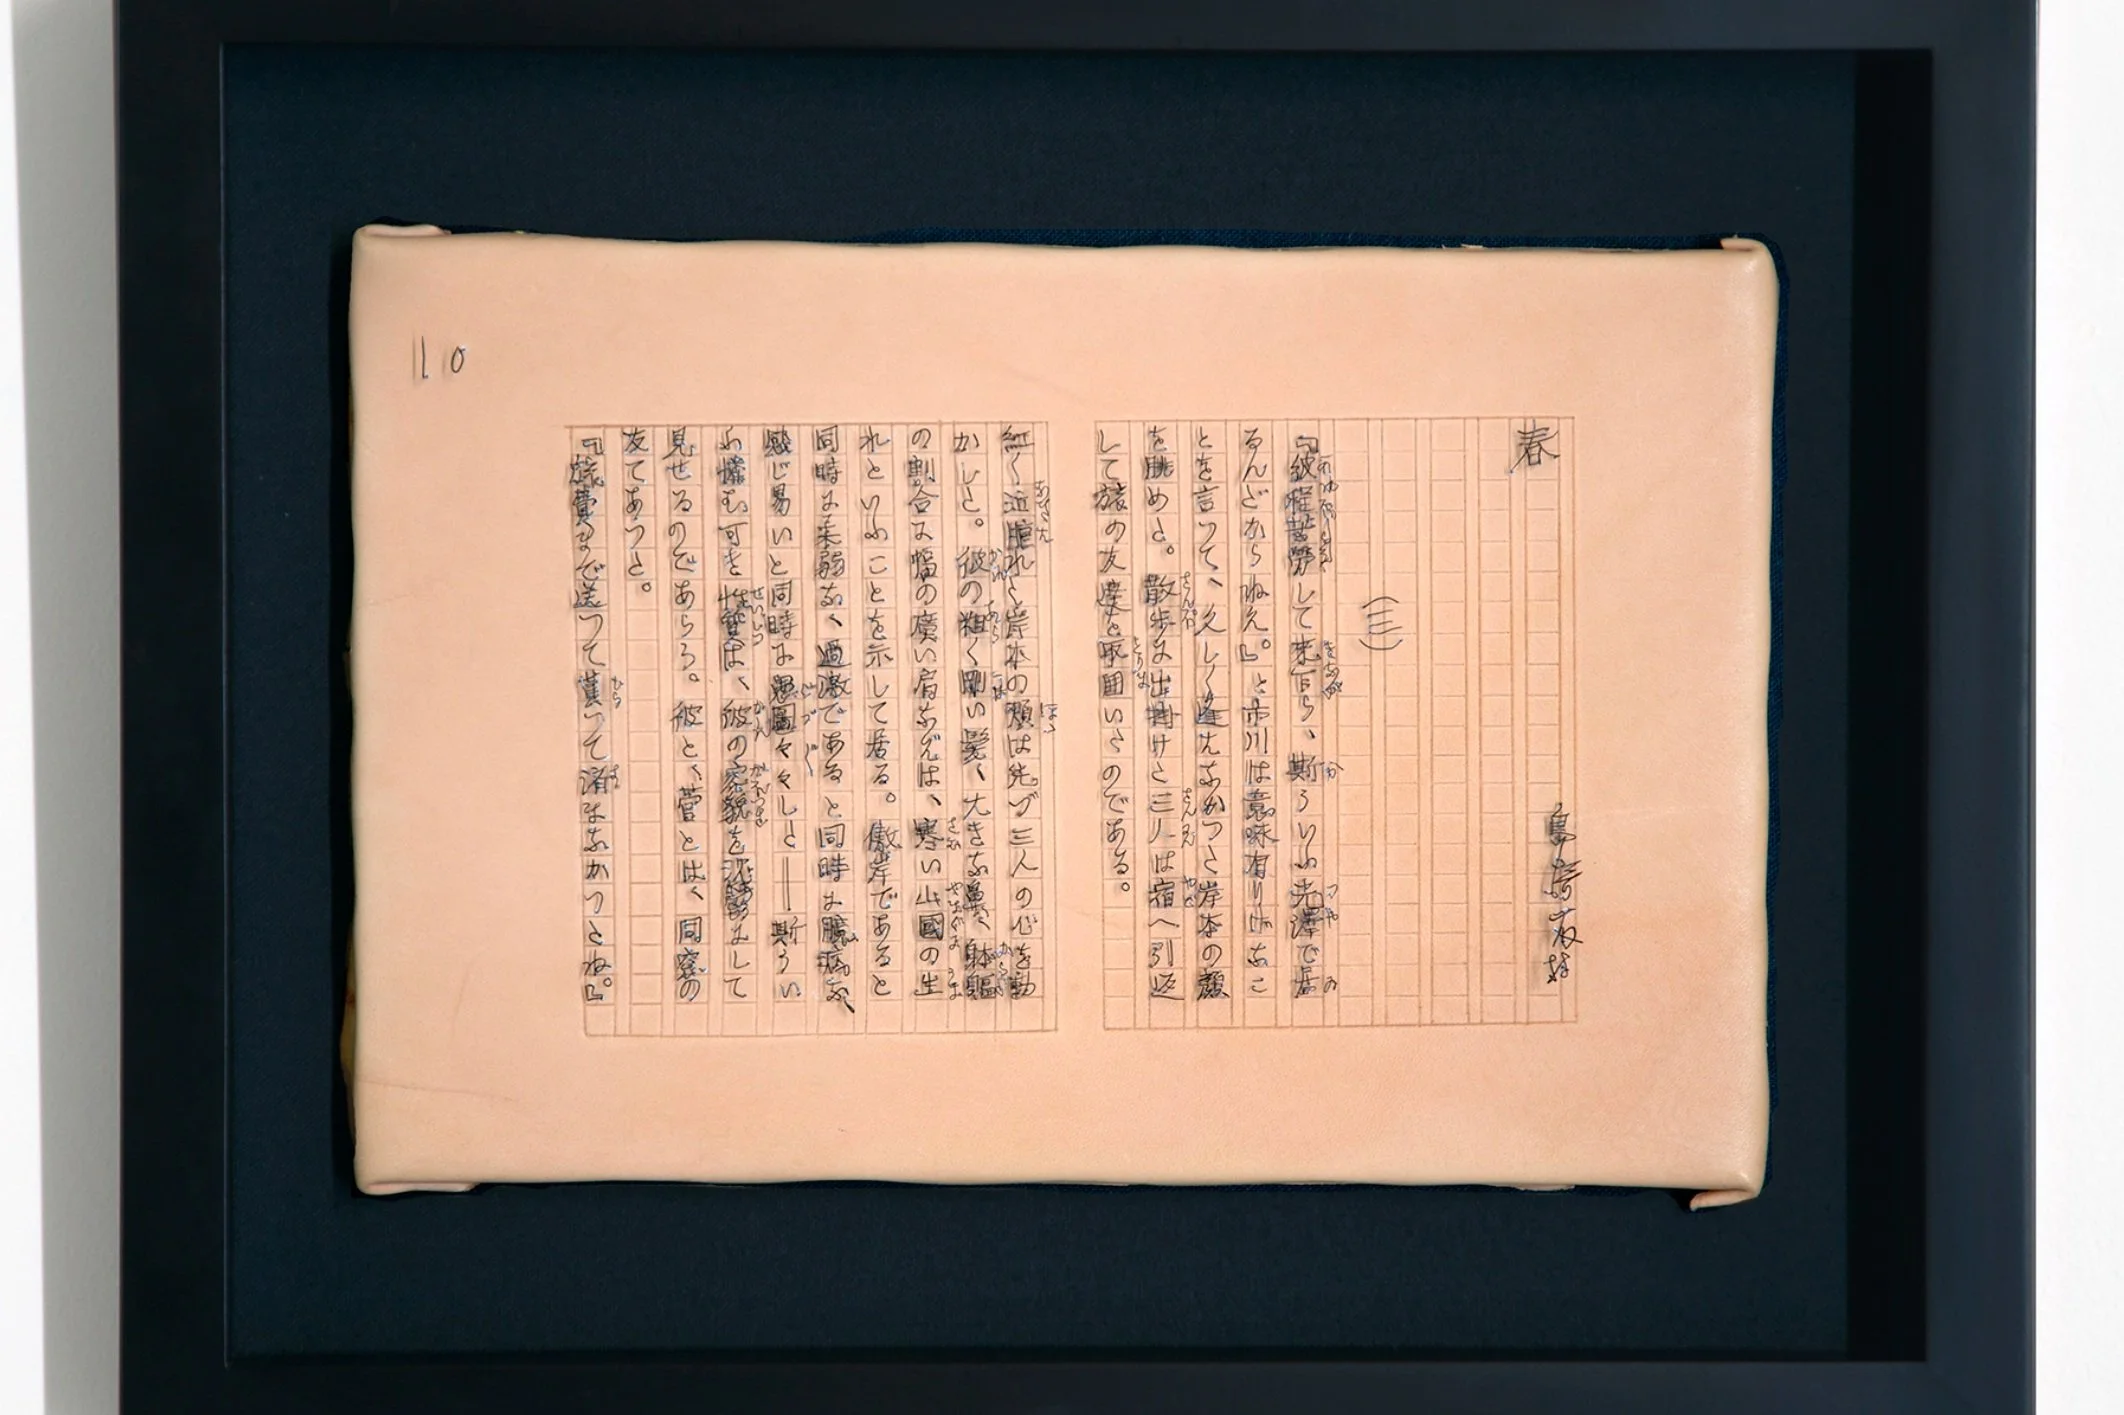 春
島崎藤村
(三)
『彼程苦勞して來乍ら、斯ういふ光澤で居
るんだからねえ。』と市川は意味有りげなこ
とを言つて、久しく逢えなかつた岸本の顏
を眺めた。散歩に出掛けた三人は宿へ引返
して旅の友達を取囲いたのである。
紅く近腫れた岸本の頬は先づ三人の心を動
かした。彼の粗く剛い髪、大きな鼻、躰軀
の割合に幅の廣い肩なぞは、寒い山國の生
れといふことを示して居る。傲岸であると
同時に柔弱な、過激であると同時に臆病な、
感じ易いと同時に愚圖々々した――斯うい
ふ憐む可き性質は、彼の容貌を沈鬱にして
見せるのであらう。彼と、菅とは、同窓の
友であつた。
『旅費まで送つて貰つて済まなかつたね。』
110